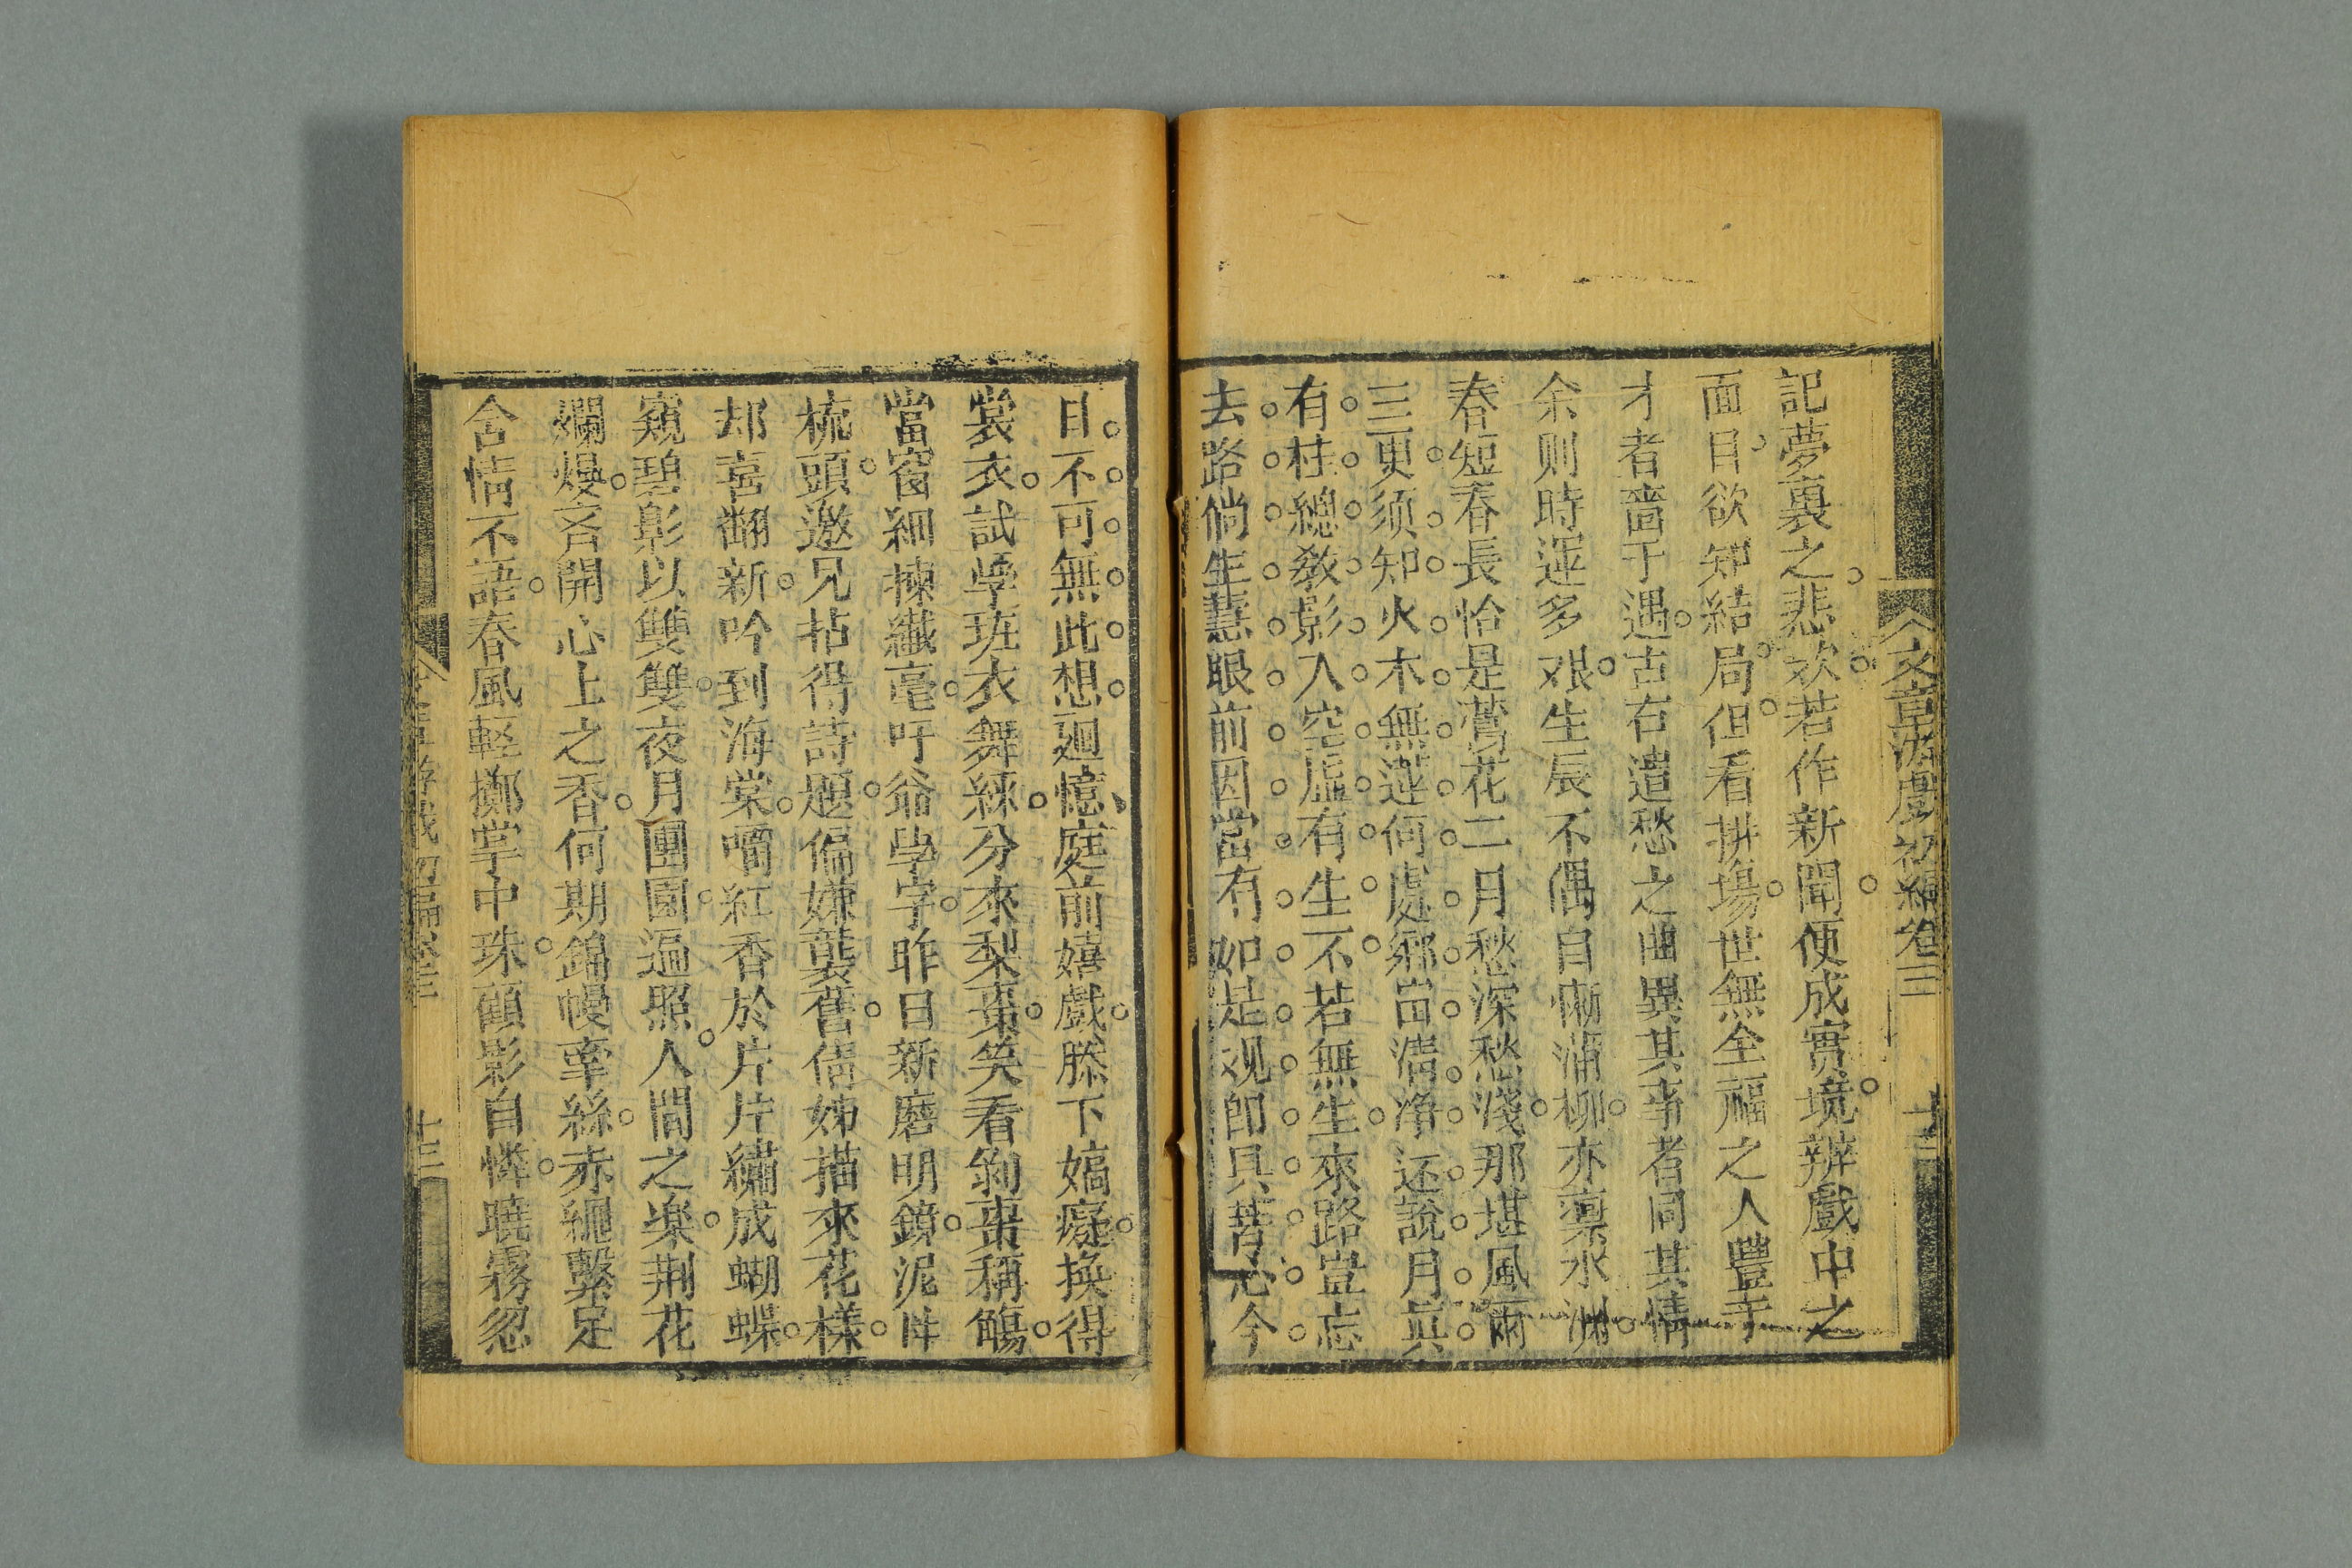 文章游戲初編卷三
十三
記夢裏之悲歡若作新聞便成實境辨戲中之
面目欲知結局但看排場世無全福之人豐于
才者嗇于遇古有遣愁之曲異其事者同其情
余则時运多艰生辰不偶自慚蒲柳亦稟氷淵
春短春長恰是鶯花二月愁深愁淺那堪風雨
三更须知火木無莲何處鄉凷淸净还說月眞
有桂總敎影入空虚有生不若無生來路豈忘
去路倘生慧眼前因當有如是观卽具菩心今
目不可無此想廻憶庭前嬉戲膝下嬌癡換得
裳衣試學班衣舞綵分來梨棗笑看匊棗稱觴
當窗細揀纖毫吁爺學字昨日新磨明鏡泥母
梳頭邀兄拈得詩題偏嫌襲舊倩姊描來花樣
却喜翻新吟到海棠嚼紅香於片片繡成蝴蝶
窺碧影以雙雙夜月團圓遍照人間之樂荆花
爛熳吝開心上之香何期錦幔牽絲赤繩繫足
含情不語春風輕擲掌中珠顧影自憐曉霧忽
十三